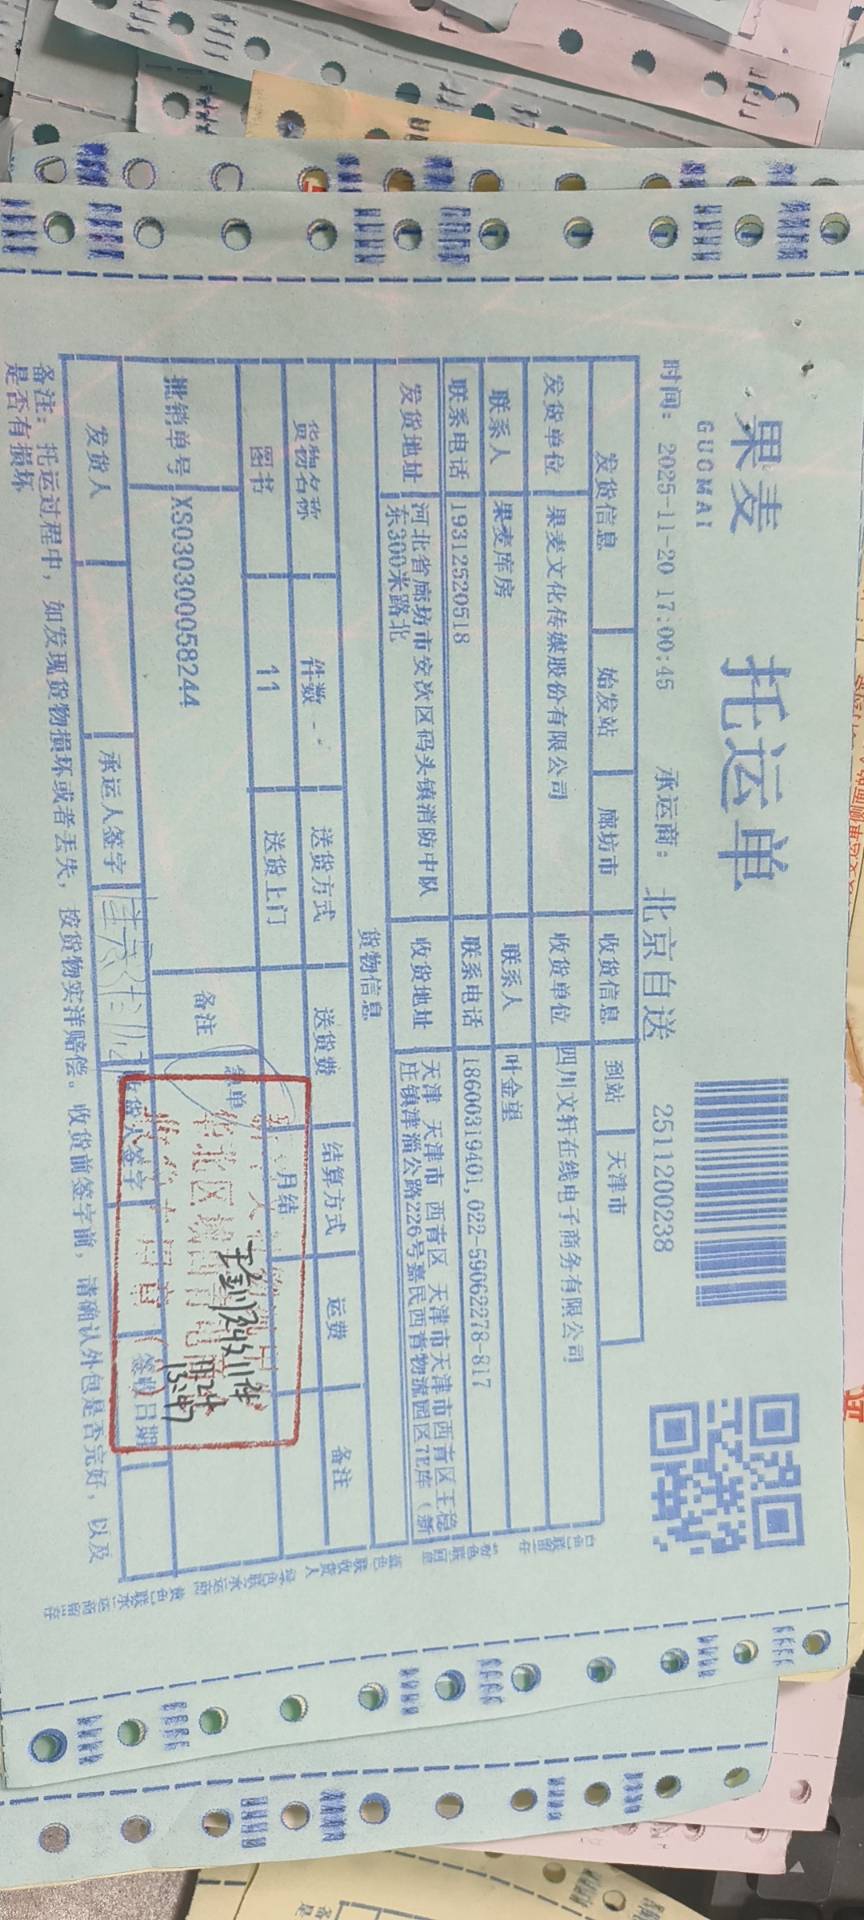 果麦
GUOMAI
托运单
时间: 2025-11-20 17:00:45 承运商: 北京自送 2511200238
发货信息 始发站 廊坊市 收货信息 到站 天津市
发货单位 果麦文化传媒股份有限公司 收货单位 四川文轩在线电子商务有限公司
联系人 果麦库房 联系人 叶金望
联系电话 19312520518 联系电话 18600319401,022-59062278-817
发货地址 河北省廊坊市安次区码头镇消防中队
东300米路北
收货地址 天津 天津市 西青区 天津市天津市西青区王稳
庄镇津淄公路226号嘉民西青物流园区7E库（新
货物信息
货物名称 件数 送货方式 送货费 结算方式 运费 备注
图书 11 送货上门 月结
批销单号 XS030300058244 备注 急单
发货人 承运人签字 收货人签字 签收日期
13:47
备注: 托运过程中, 如发现货物损坏或者丢失, 按货物实洋赔偿。收货前签字前, 请确认外包是否完好, 以及
是否有损坏
白色联留存 粉色联回单 蓝色联收货人 绿色联承运商 黄色联承运商留存